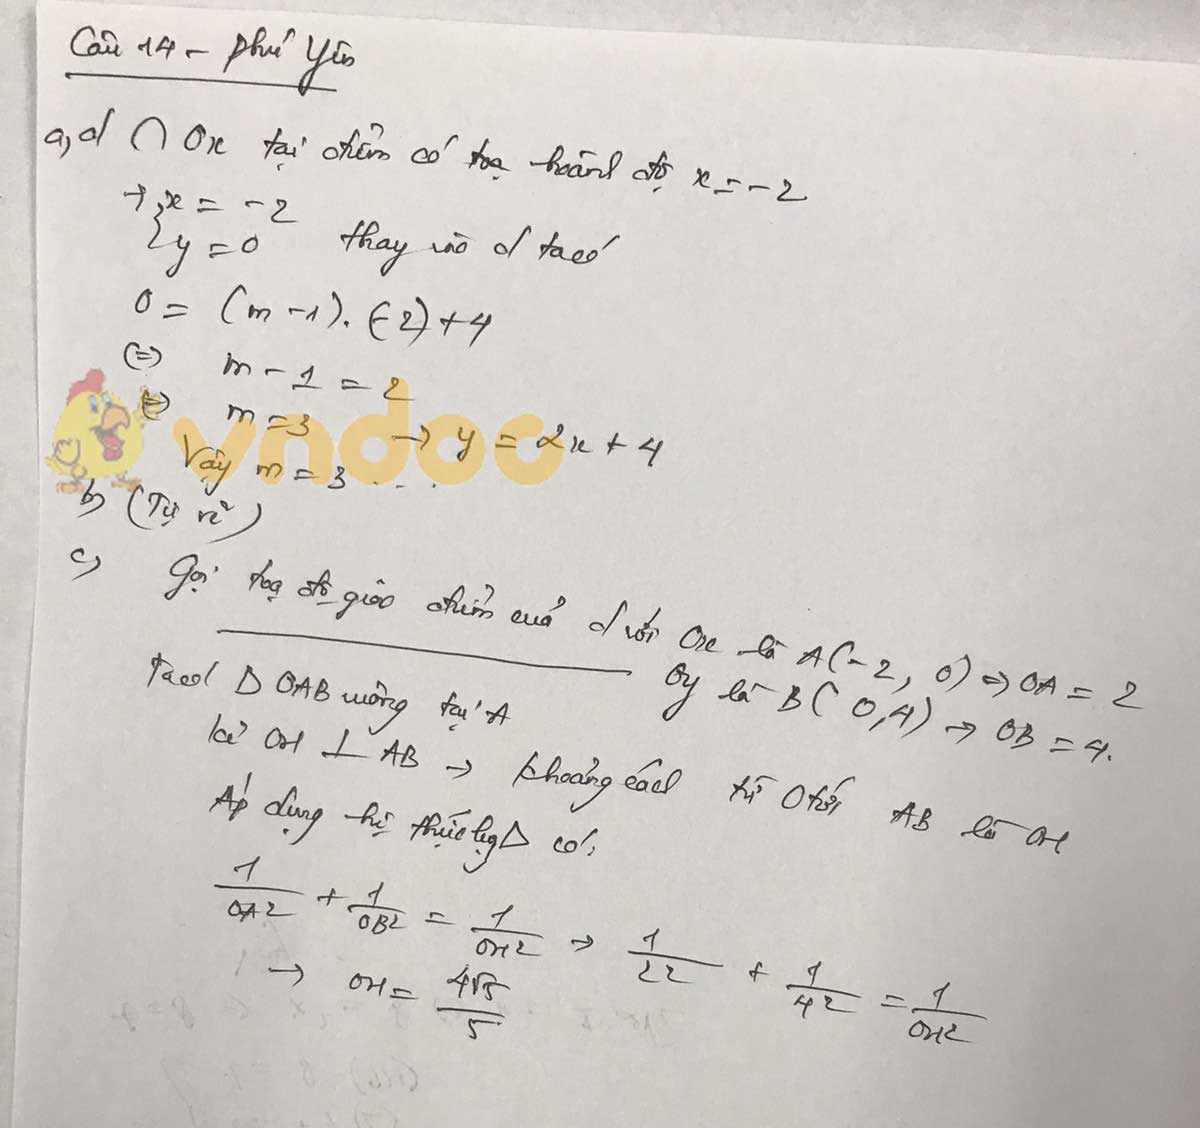 Câu 14 - Phú Yên
a, d ∩ Ox tại điểm có toạ hoành độ x = -2
→ { x = -2
y = 0 thay vào d ta có
0 = (m - 1). (-2) + 4
(=) m - 1 = 2
(=) m = 3 → y = 2x + 4
Vậy m = 3 ....
b, (Tự vẽ)
c, Gọi toạ độ giao điểm của d với Ox là A(-2, 0) → OA = 2
Oy là B(0, 4) → OB = 4.
Ta có Δ OAB vuông tại A
kẻ OH ⊥ AB → khoảng cách từ O tới AB là OH
Áp dụng hệ thức lg Δ có:
1/OA2 + 1/OB2 = 1/OH2 → 1/22 + 1/42 = 1/OH2
→ OH = 4√5/5
vndoc